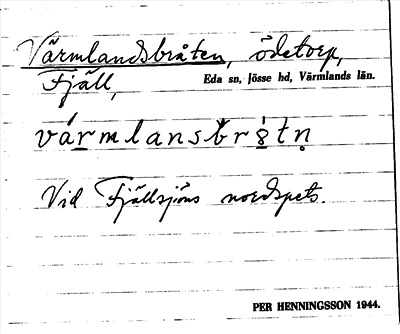 Värmlandsbråten, ödetorp,
Fjäll, Eda sn, Jösse hd, Värmlands län.
vármlansbrǝ̀tṇ
Vid Fjällsjöns nordspets.
PER HENNINGSSON 1944.